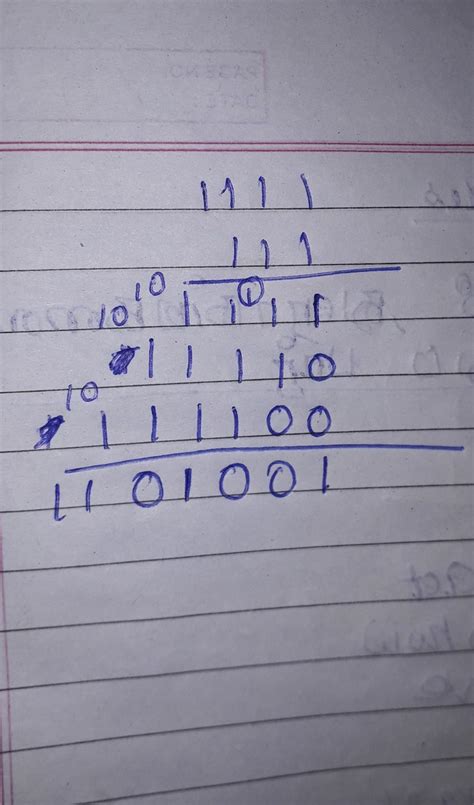 1111
111
10
10 1 1 ① 1 1
11110
10
111100
1101001